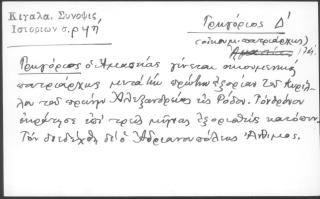 Κιγάλα, Σύνοψις
Ιστοριων σ. ρμή
Γρηγόριος Δ΄
(οἰκουμ. πατριάρχης)
Γρηγόριος ὁ Ἀμασείας γίνεται οἰκουμενικὸς
πατριάρχης μετὰ τὴν πρώτην ἐξορίαν τοῦ Κυρίλ-
λου τοῦ πρώην Ἀλεξανδρείας εἰς Ρόδον. Τὸν θρόνον
ἐκράτησε ἐπὶ τρεῖς μῆνας ἐξορισθεὶς κατόπιν.
Τὸν διεδέχθη δὲ ὁ Ἀδριανουπόλεως Ἄνθιμος.